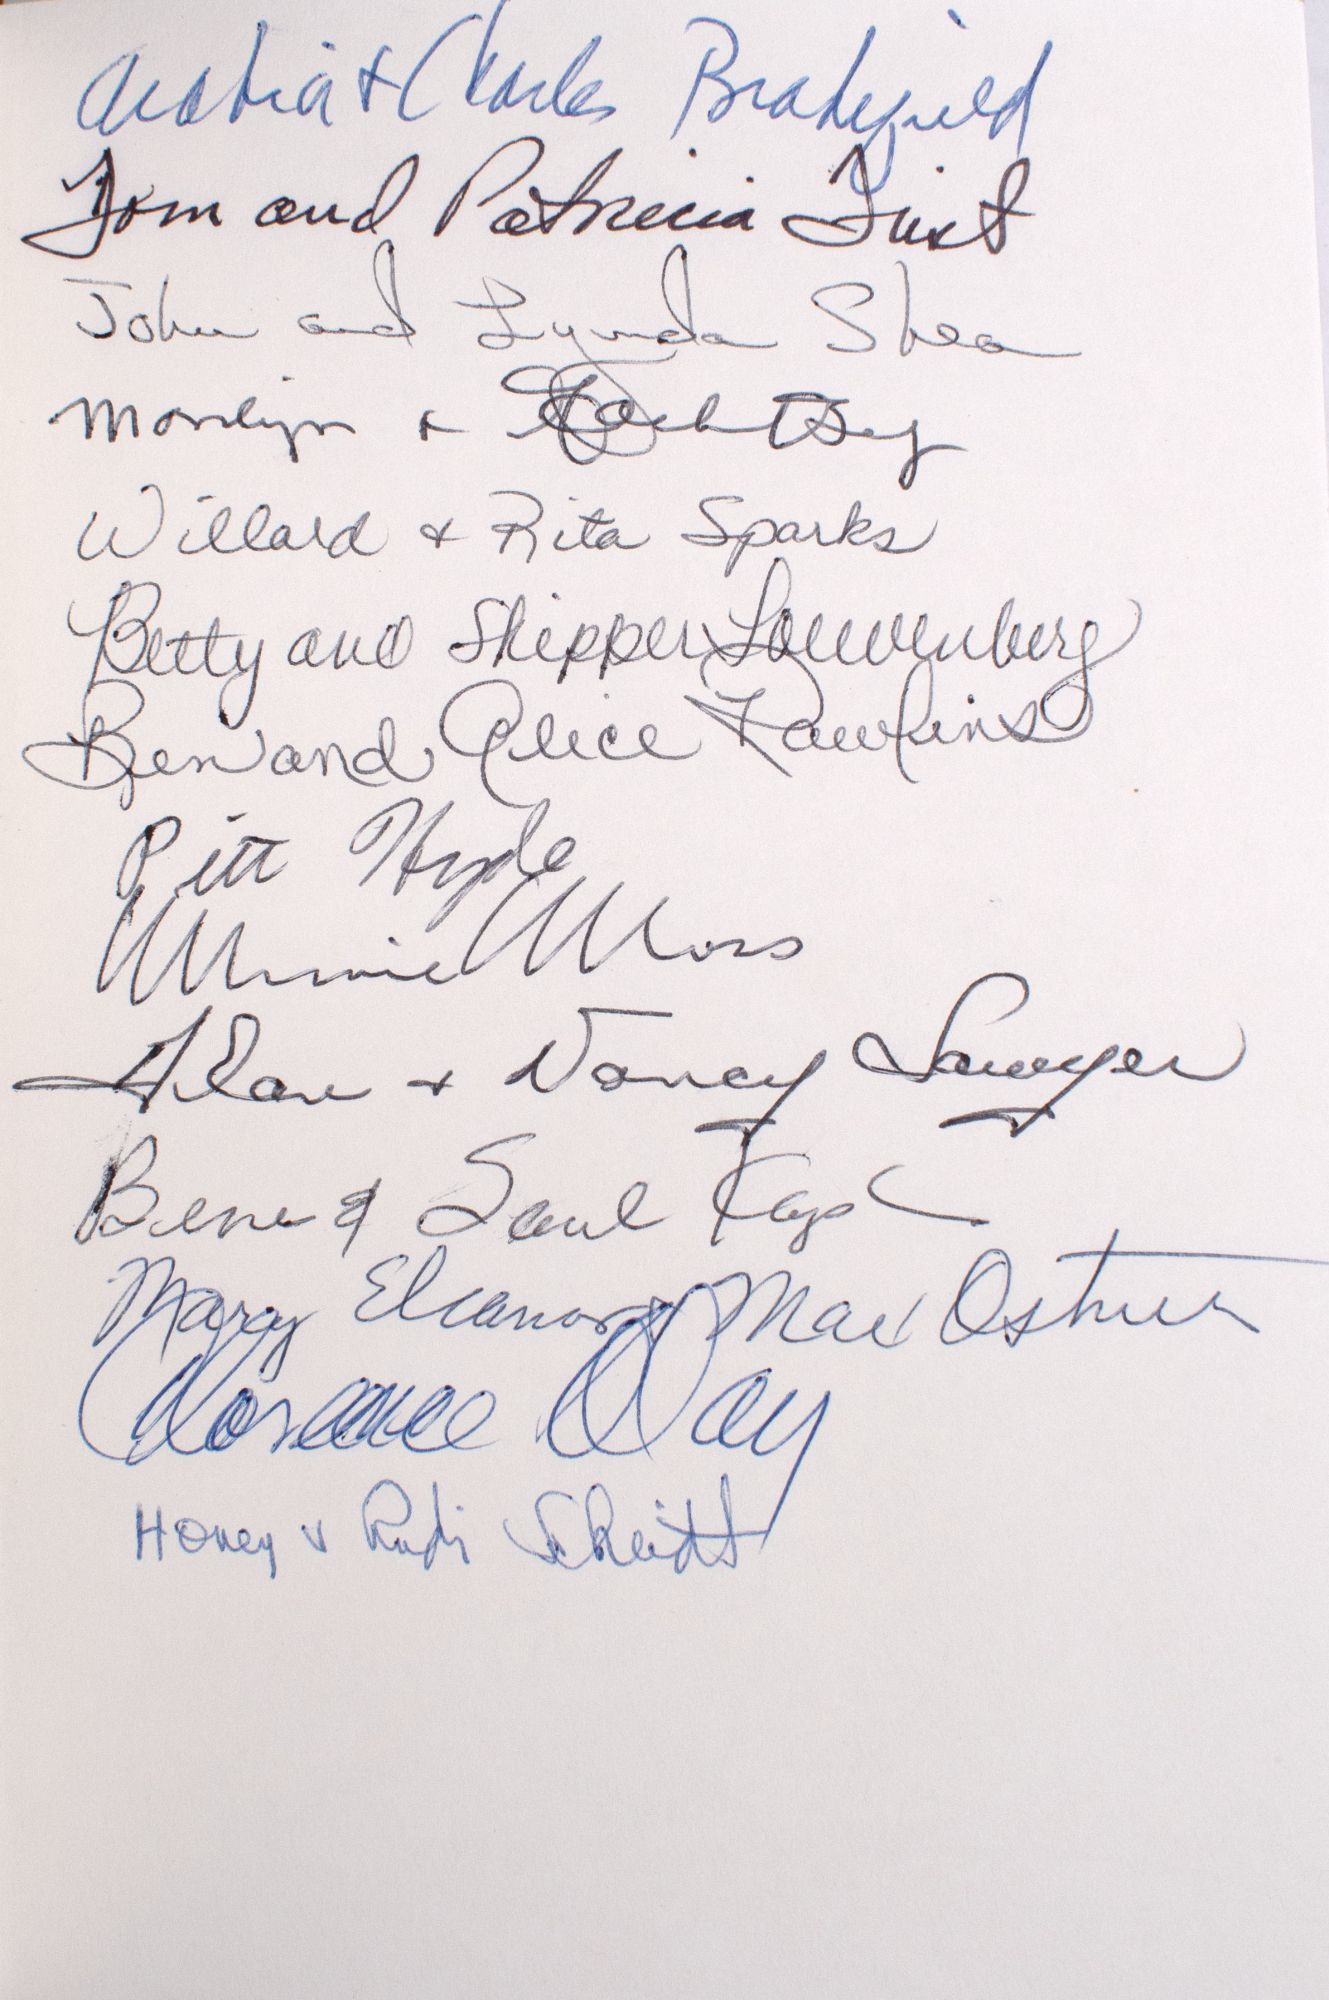 & Charles
Tom and Patricia
John and Lynda Shea
Marilyn & Jack
Willard & Rita Sparks
Betty and Skipper Loewenberg
Ben and Alice Rawlins
Pitt Hyde
Minnie Moss
& Nancy Sawyer
& Saul
Mary Eleanor & Max Ostner
Clorance Day
Honey & Rudi Scheidt